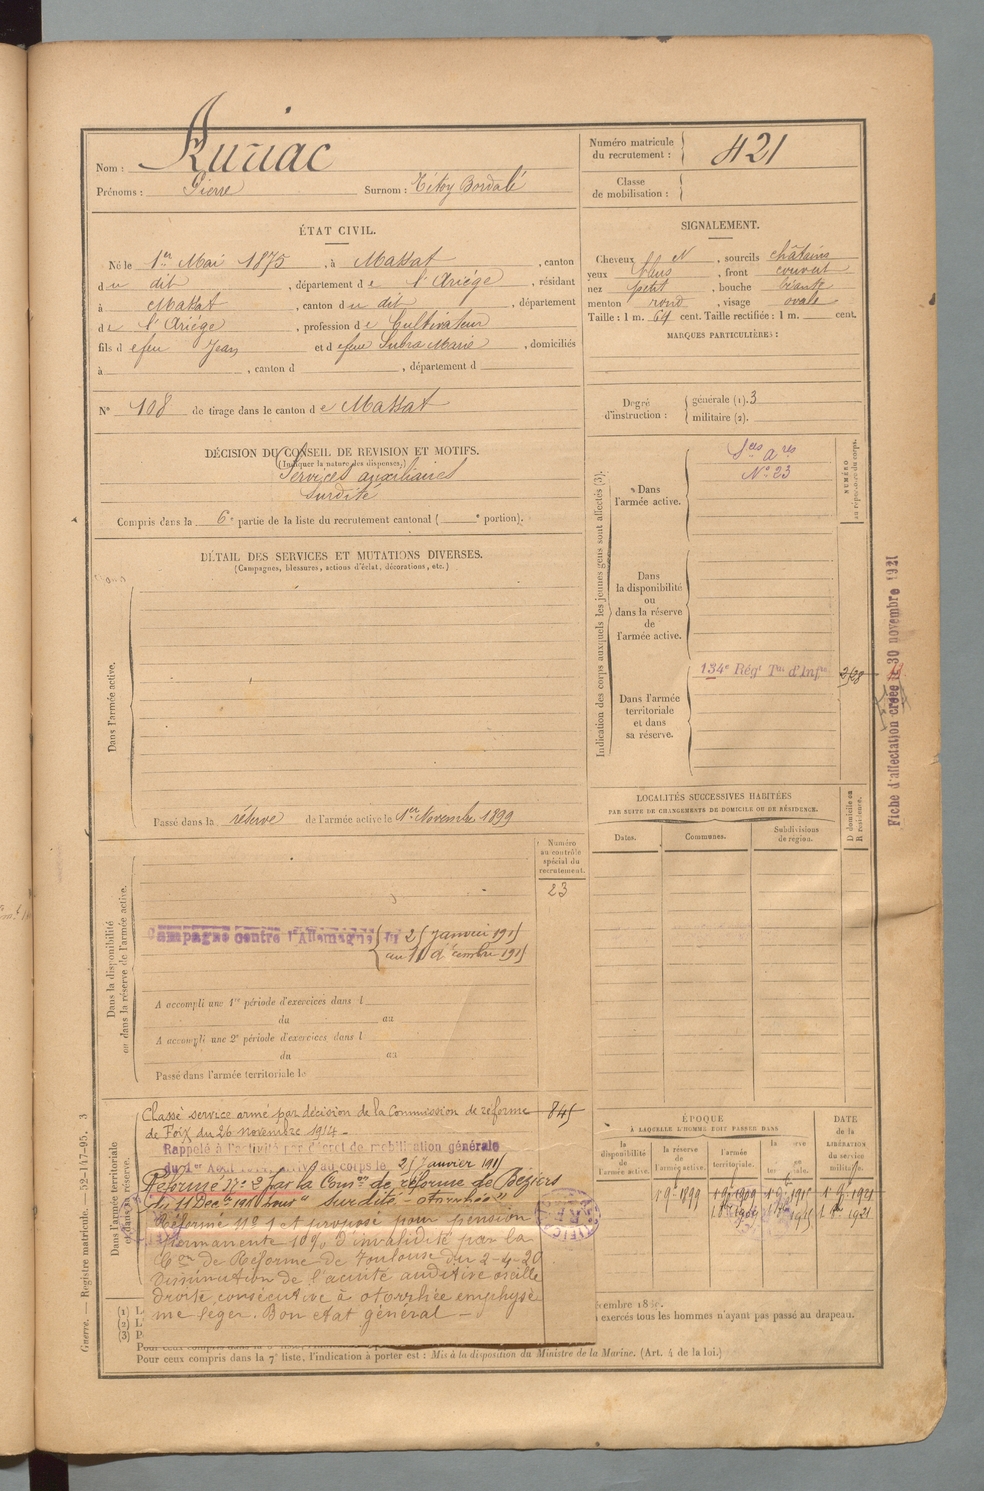 Nom : Auriac
Prénoms : Pierre Surnom : Titoy Bordalé
Numéro matricule du recrutement : 421
Classe de mobilisation :
ÉTAT CIVIL.
Né le 1er Mai 1875, à Massat, canton
du dit, département de l'Ariége, résidant
à Massat, canton du dit, département
de l'Ariége, profession de Cultivateur
fils de feu Jean et de feue Subra Marie, domiciliés
à , canton d , département d
N° 108 de tirage dans le canton de Massat
SIGNALEMENT.
Cheveux N, sourcils châtains
yeux bleus, front couvert
nez petit, bouche
menton rond, visage ovale
Taille : 1 m. 64 cent. Taille rectifiée : 1 m. cent.
MARQUES PARTICULIÈRES :
Degré d'instruction : générale (1). 3
militaire (2).
DÉCISION DU CONSEIL DE REVISION ET MOTIFS.
(Indiquer la nature des dispenses.)
Services auxiliaires
surdité
Compris dans la 6e partie de la liste du recrutement cantonal ( e portion).
DÉTAIL DES SERVICES ET MUTATIONS DIVERSES.
(Campagnes, blessures, actions d'éclat, décorations, etc.)
Dans l'armée active.
Passé dans la réserve de l'armée active le 1er Novembre 1899
Indication des corps auxquels les jeunes gens sont affectés (3).
NUMÉRO au répertoire du corps.
Dans l'armée active.
Sces Ares
N° 23
Dans la disponibilité ou dans la réserve de l'armée active.
Dans l'armée territoriale et dans sa réserve.
134e Régt Tal d'Infie
Fiche d'affectation créée le 30 novembre 1921
LOCALITÉS SUCCESSIVES HABITÉES
PAR SUITE DE CHANGEMENTS DE DOMICILE OU DE RÉSIDENCE.
Dates. Communes. Subdivisions de région. D domicile ou R résidence.
Dans la disponibilité ou dans la réserve de l'armée active.
Numéro au contrôle spécial du recrutement.
23
Campagne contre l'Allemagne du 25 Janvier 1915
au 11 décembre 1915
A accompli une 1re période d'exercices dans l
du au
A accompli une 2e période d'exercices dans l
du au
Passé dans l'armée territoriale le
Dans l'armée territoriale et dans sa réserve.
Classé service armé par décision de la Commission de réforme 845
de Foix du 26 novembre 1914.
Rappelé à l'activité par décret de mobilisation générale
du 1er Août arrivé au corps le 25 Janvier 1915
Réformé N° 2 par la Comon de réforme de Béziers
du 11 Décbre 1915 pour "surdité - otorrhée"
Réformé n° 1 et proposé pour pension
permanente 10% d'invalidité par la
Con de Réforme de Toulouse du 2-4-20
Diminution de l'acuité auditive oreille
droite consécutive à otorrhée emphysè
me léger. Bon état général -
ÉPOQUE
À LAQUELLE L'HOMME DOIT PASSER DANS
la disponibilité de l'armée active. la réserve de l'armée active. l'armée territoriale.
DATE de la LIBÉRATION du service militaire.
(1)
(2)
(3)
exercés tous les hommes n'ayant pas passé au drapeau.
Pour ceux compris dans la 7e liste, l'indication à porter est : Mis à la disposition du Ministre de la Marine. (Art. 4 de la loi.)
Guerre. — Registre matricule. — 52-147-95. 3